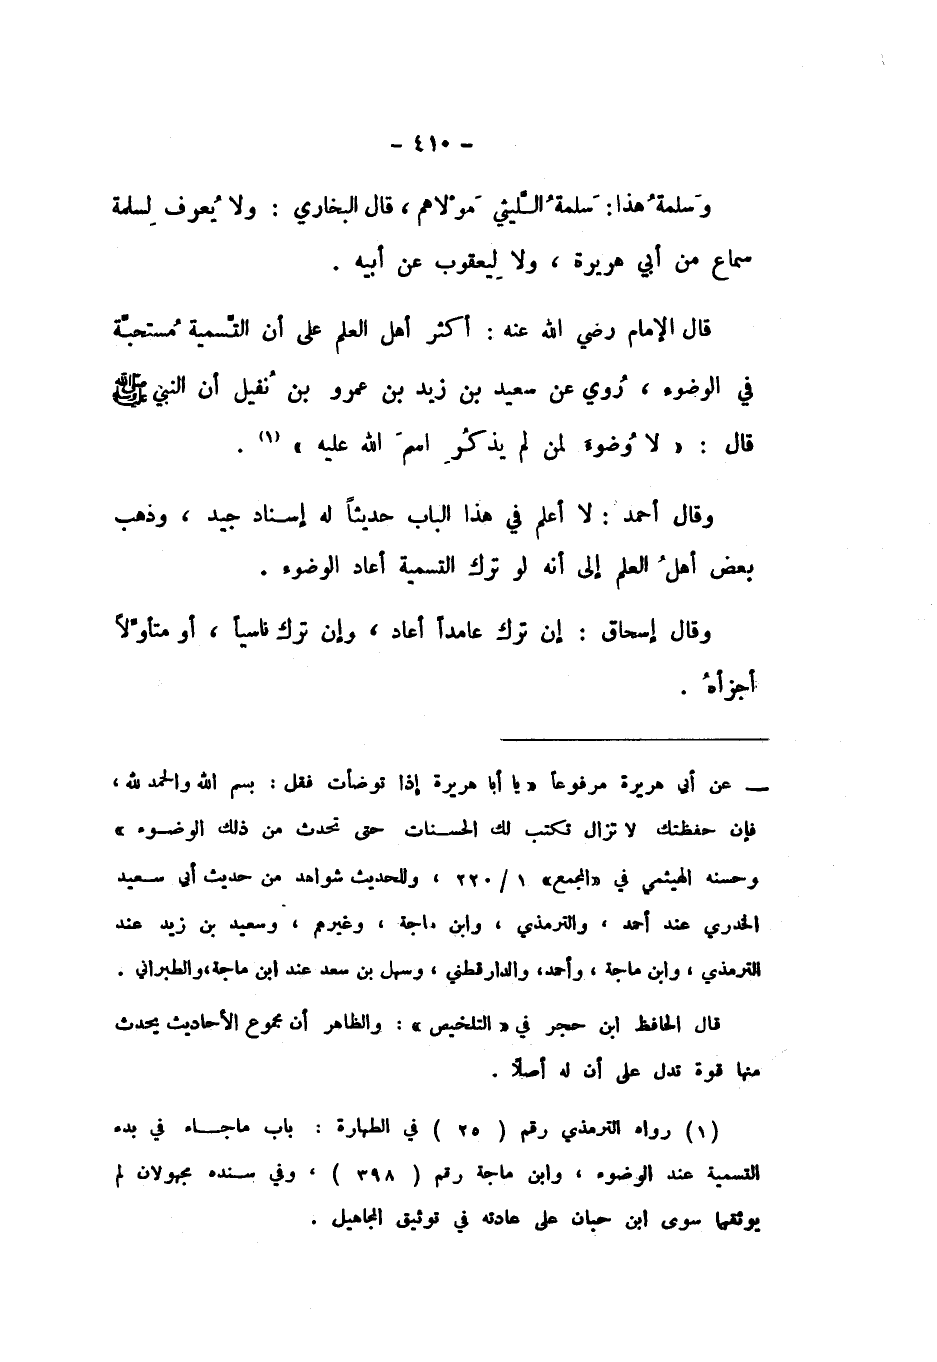 - ٤١٠ -
وَسلمةُ هذا: سَلمةُ اللَّيثي مَوْلاهم ، قال البخاري : ولا يُعرف لِسلمة
سماع من أبي هريرة ، ولا لِيعقوب عن أبيه .
قال الإمام رضي الله عنه : أكثر أهل العلم على أن التَّسمية مُستحبَّة
في الوضوء ، رُوي عن سعيد بن زيد بن عمرو بن نُفيل أن النبي ﷺ
قال : « لا وُضوءَ لمن لم يذكُرِ اسمَ الله عليه » (١) .
وقال أحمد : لا أعلم في هذا الباب حديثاً له إسناد جيد ، وذهب
بعض أهلُ العلم إلى أنه لو ترك التسمية أعاد الوضوء .
وقال إسحاق : إن ترك عامداً أعاد ، وإن ترك ناسياً ، أو متأوِّلاً
أجزأهُ .
ــ عن أبي هريرة مرفوعاً « يا أبا هريرة إذا توضأت فقل : بسم الله والحمد لله ،
فإن حفظتك لا تزال تكتب لك الحسنات حتى تحدث من ذلك الوضوء »
وحسنه الهيثمي في «المجمع» ١ / ٢٢٠ ، وللحديث شواهد من حديث أبي سعيد
الخدري عند أحمد ، والترمذي ، وابن ماجة ، وغيرهم ، وسعيد بن زيد عند
الترمذي ، وابن ماجة ، وأحمد، والدارقطني ، وسهل بن سعد عند ابن ماجة،والطبراني .
قال الحافظ ابن حجر في « التلخيص » : والظاهر أن مجموع الأحاديث يحدث
منها قوة تدل على أن له أصلًا .
(١) رواه الترمذي رقم ( ٢٥ ) في الطهارة : باب ماجاء في بدء
التسمية عند الوضوء ، وابن ماجة رقم ( ٣٩٨ ) ، وفي سنده مجهولان لم
يوثقها سوى ابن حبان على عادته في توثيق المجاهيل .